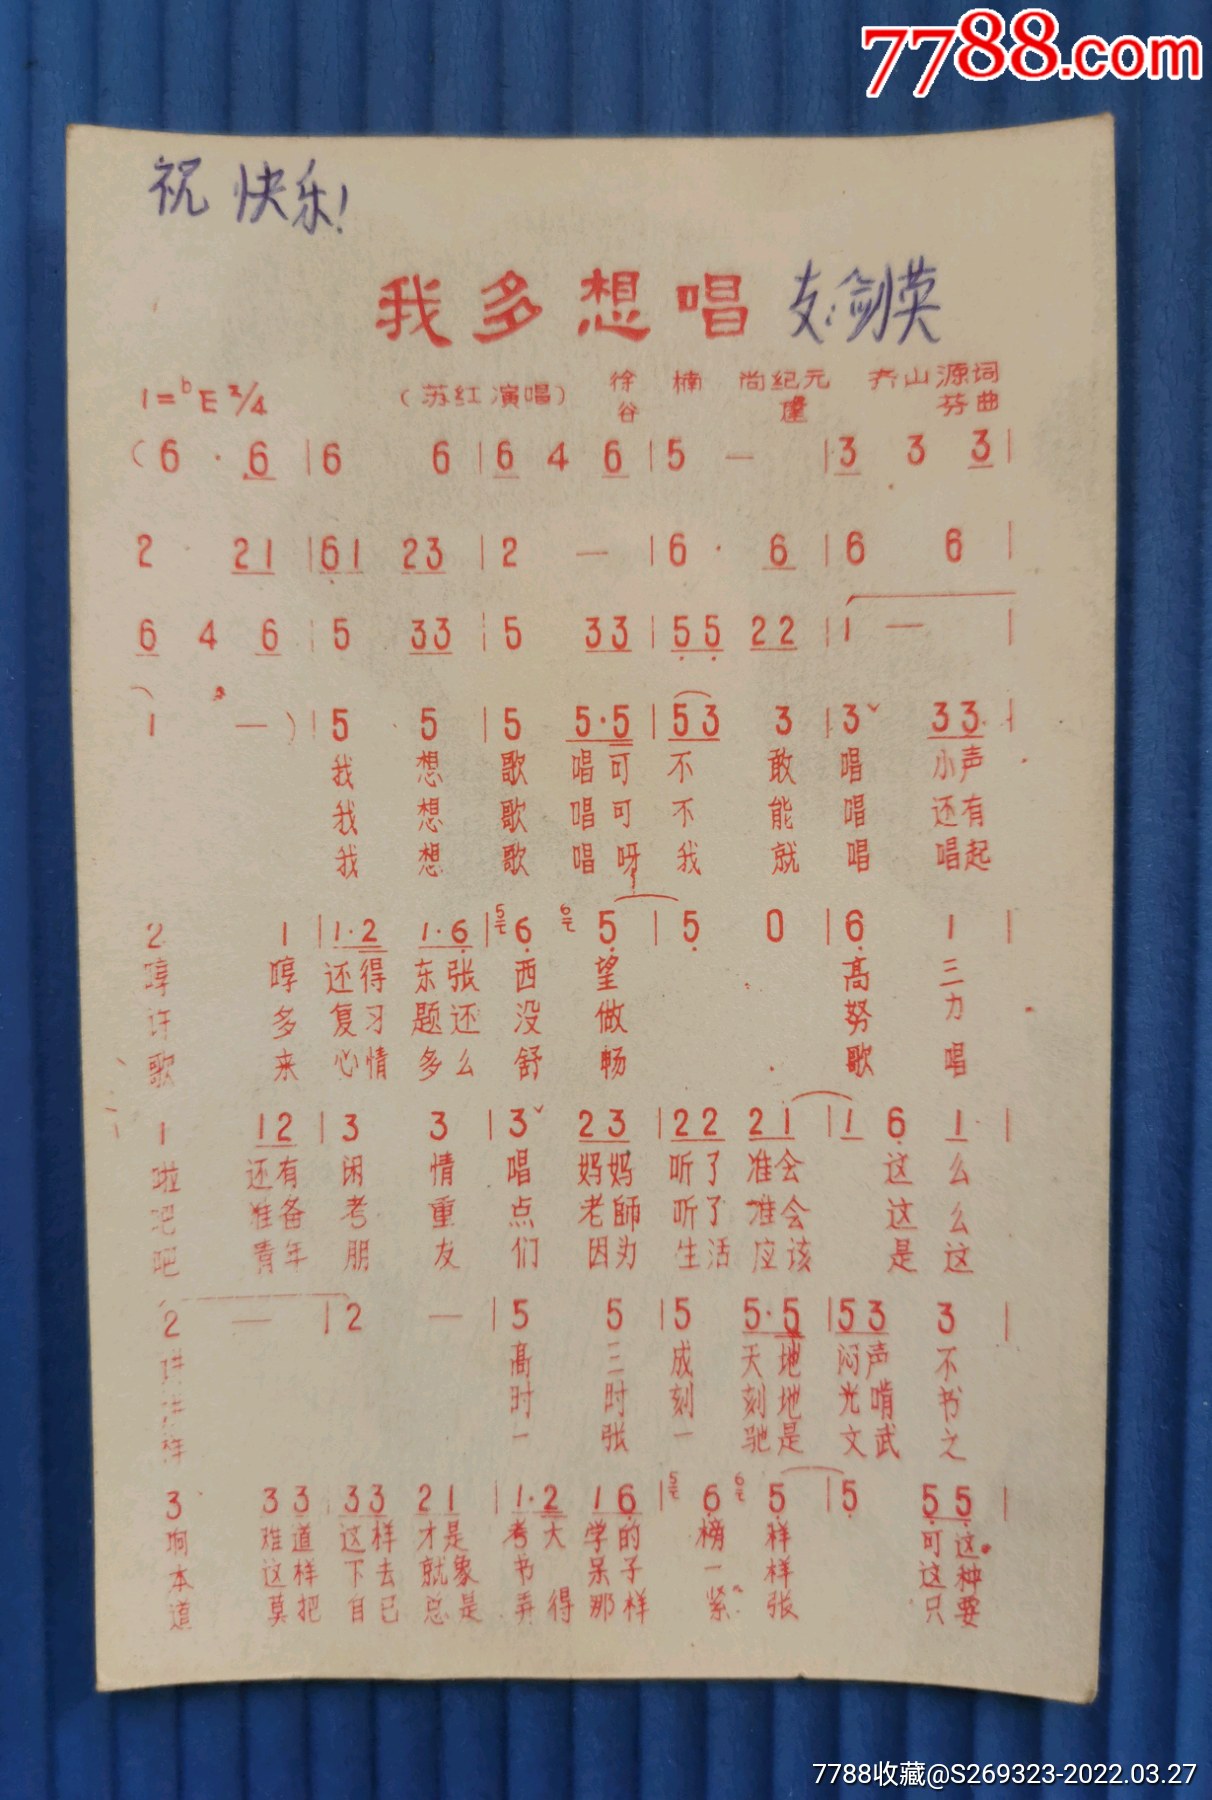 7788.com
祝 快乐!
我多想唱 友:剑英
1=ᵇE 2/4 (苏红演唱) 徐楠 尚纪元 齐山源词
谷建芬曲
(6 · 6 | 6 6 | 6 4 6 | 5 — | 3 3 3 |
2 21 | 61 23 | 2 — | 6 · 6 | 6 6 |
6 4 6 | 5 33 | 5 33 | 55 22 | 1 — |
1 — ) | 5 5 | 5 5·5 | 53 3 | 3ˇ 33 |
我 想 歌 唱可 不 敢 唱 小声
我 想 歌 唱可 不 能 唱 还有
我 想 歌 唱呀 我 就 唱 唱起
2 1 | 1·2 1·6 | 5 6 6 5 | 5 0 | 6 1 |
哼 哼 还得 东张 西 望 高 三
许 多 复习 题还 没 做 努 力
歌 来 心情 多么 舒 畅 歌 唱
1 12 | 3 3 | 3ˇ 23 | 22 21 | 1 6 1 |
啦 还有 闲 情 唱 妈妈 听了 准会 这 么
吧 准备 考 重 点 老师 听了 准会 这 么
吧 青年 朋 友 们 因为 生活 应该 是 这
2 — | 2 — | 5 5 | 5 5·5 | 53 3 |
讲 高 三 成 天地 闷声 不
讲 时 时 刻 刻地 光啃 书
样 一 张 一 驰是 文武 之
3 33 | 33 21 | 1·2 16 | 5 6 6 5 | 5 55 |
响 难道 这样 才是 考大 学的 榜 样 可这
本 这样 下去 就象 书 呆子 一 样 这种
道 莫把 自己 总是 弄得 那样 紧 张 只要
7788收藏@S269323-2022.03.27